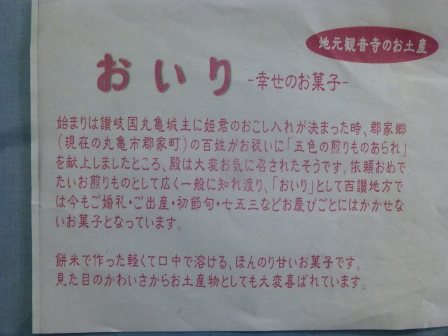 地元観音寺のお土産
おいり -幸せのお菓子-
始まりは讃岐国丸亀城主に姫君のおこし入れが決まった時、郡家郷
(現在の丸亀市郡家町)の百姓がお祝いに「五色の煎りものあられ」
を献上しましたところ、殿は大変お気に召されたそうです。依頼おめで
たいお煎りものとして広く一般に知れ渡り、「おいり」として西讃地方で
は今もご婚礼・ご出産・初節句・七五三などお慶びごとにはかかせな
いお菓子となっています。
餅米で作った軽くて口中で溶ける、ほんのり甘いお菓子です。
見た目のかわいさからお土産物としても大変喜ばれています。